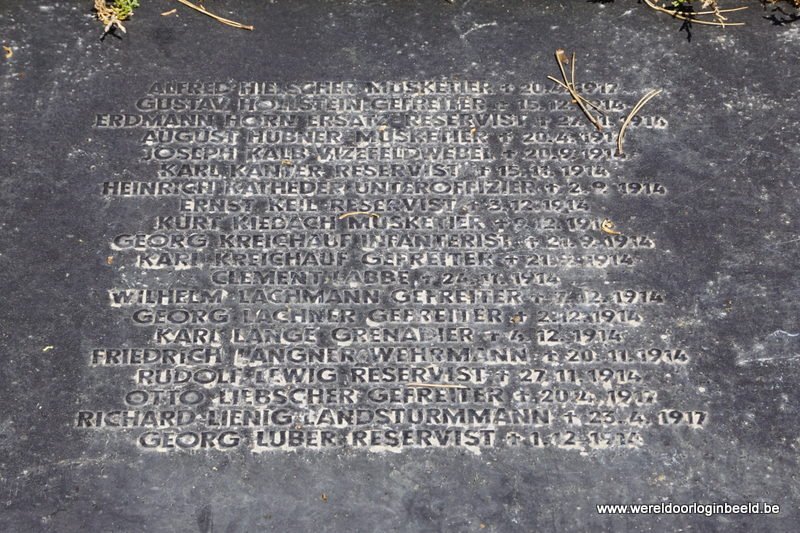 ALFRED HIELSCHER MUSKETIER † 20.4.1917
GUSTAV HOLLSTEIN GEFREITER † 15.12.1914
ERDMANN HORN ERSATZ-RESERVIST † 27.11.1914
AUGUST HÜBNER MUSKETIER † 20.4.1917
JOSEPH KALB VIZEFELDWEBEL † 20.9.1914
KARL KANTER RESERVIST † 15.11.1914
HEINRICH KATHEDER UNTEROFFIZIER † 2.9.1914
ERNST KEIL RESERVIST † 3.12.1914
KURT KIEBACH MUSKETIER † 9.12.1914
GEORG KREICHAUF INFANTERIST † 21.9.1914
KARL KREICHAUF GEFREITER † 21.9.1914
CLEMENT LABBE † 24.11.1914
WILHELM LACHMANN GEFREITER † 17.12.1914
GEORG LACHNER GEFREITER † 2.12.1914
KARL LANGE GRENADIER † 4.12.1914
FRIEDRICH LANGNER WEHRMANN † 20.11.1914
RUDOLF LEWIG RESERVIST † 27.11.1914
OTTO LIEBSCHER GEFREITER † 20.4.1917
RICHARD LIENIG LANDSTURMMANN † 23.4.1917
GEORG LUBER RESERVIST † 1.12.1914
www.wereldoorloginbeeld.be